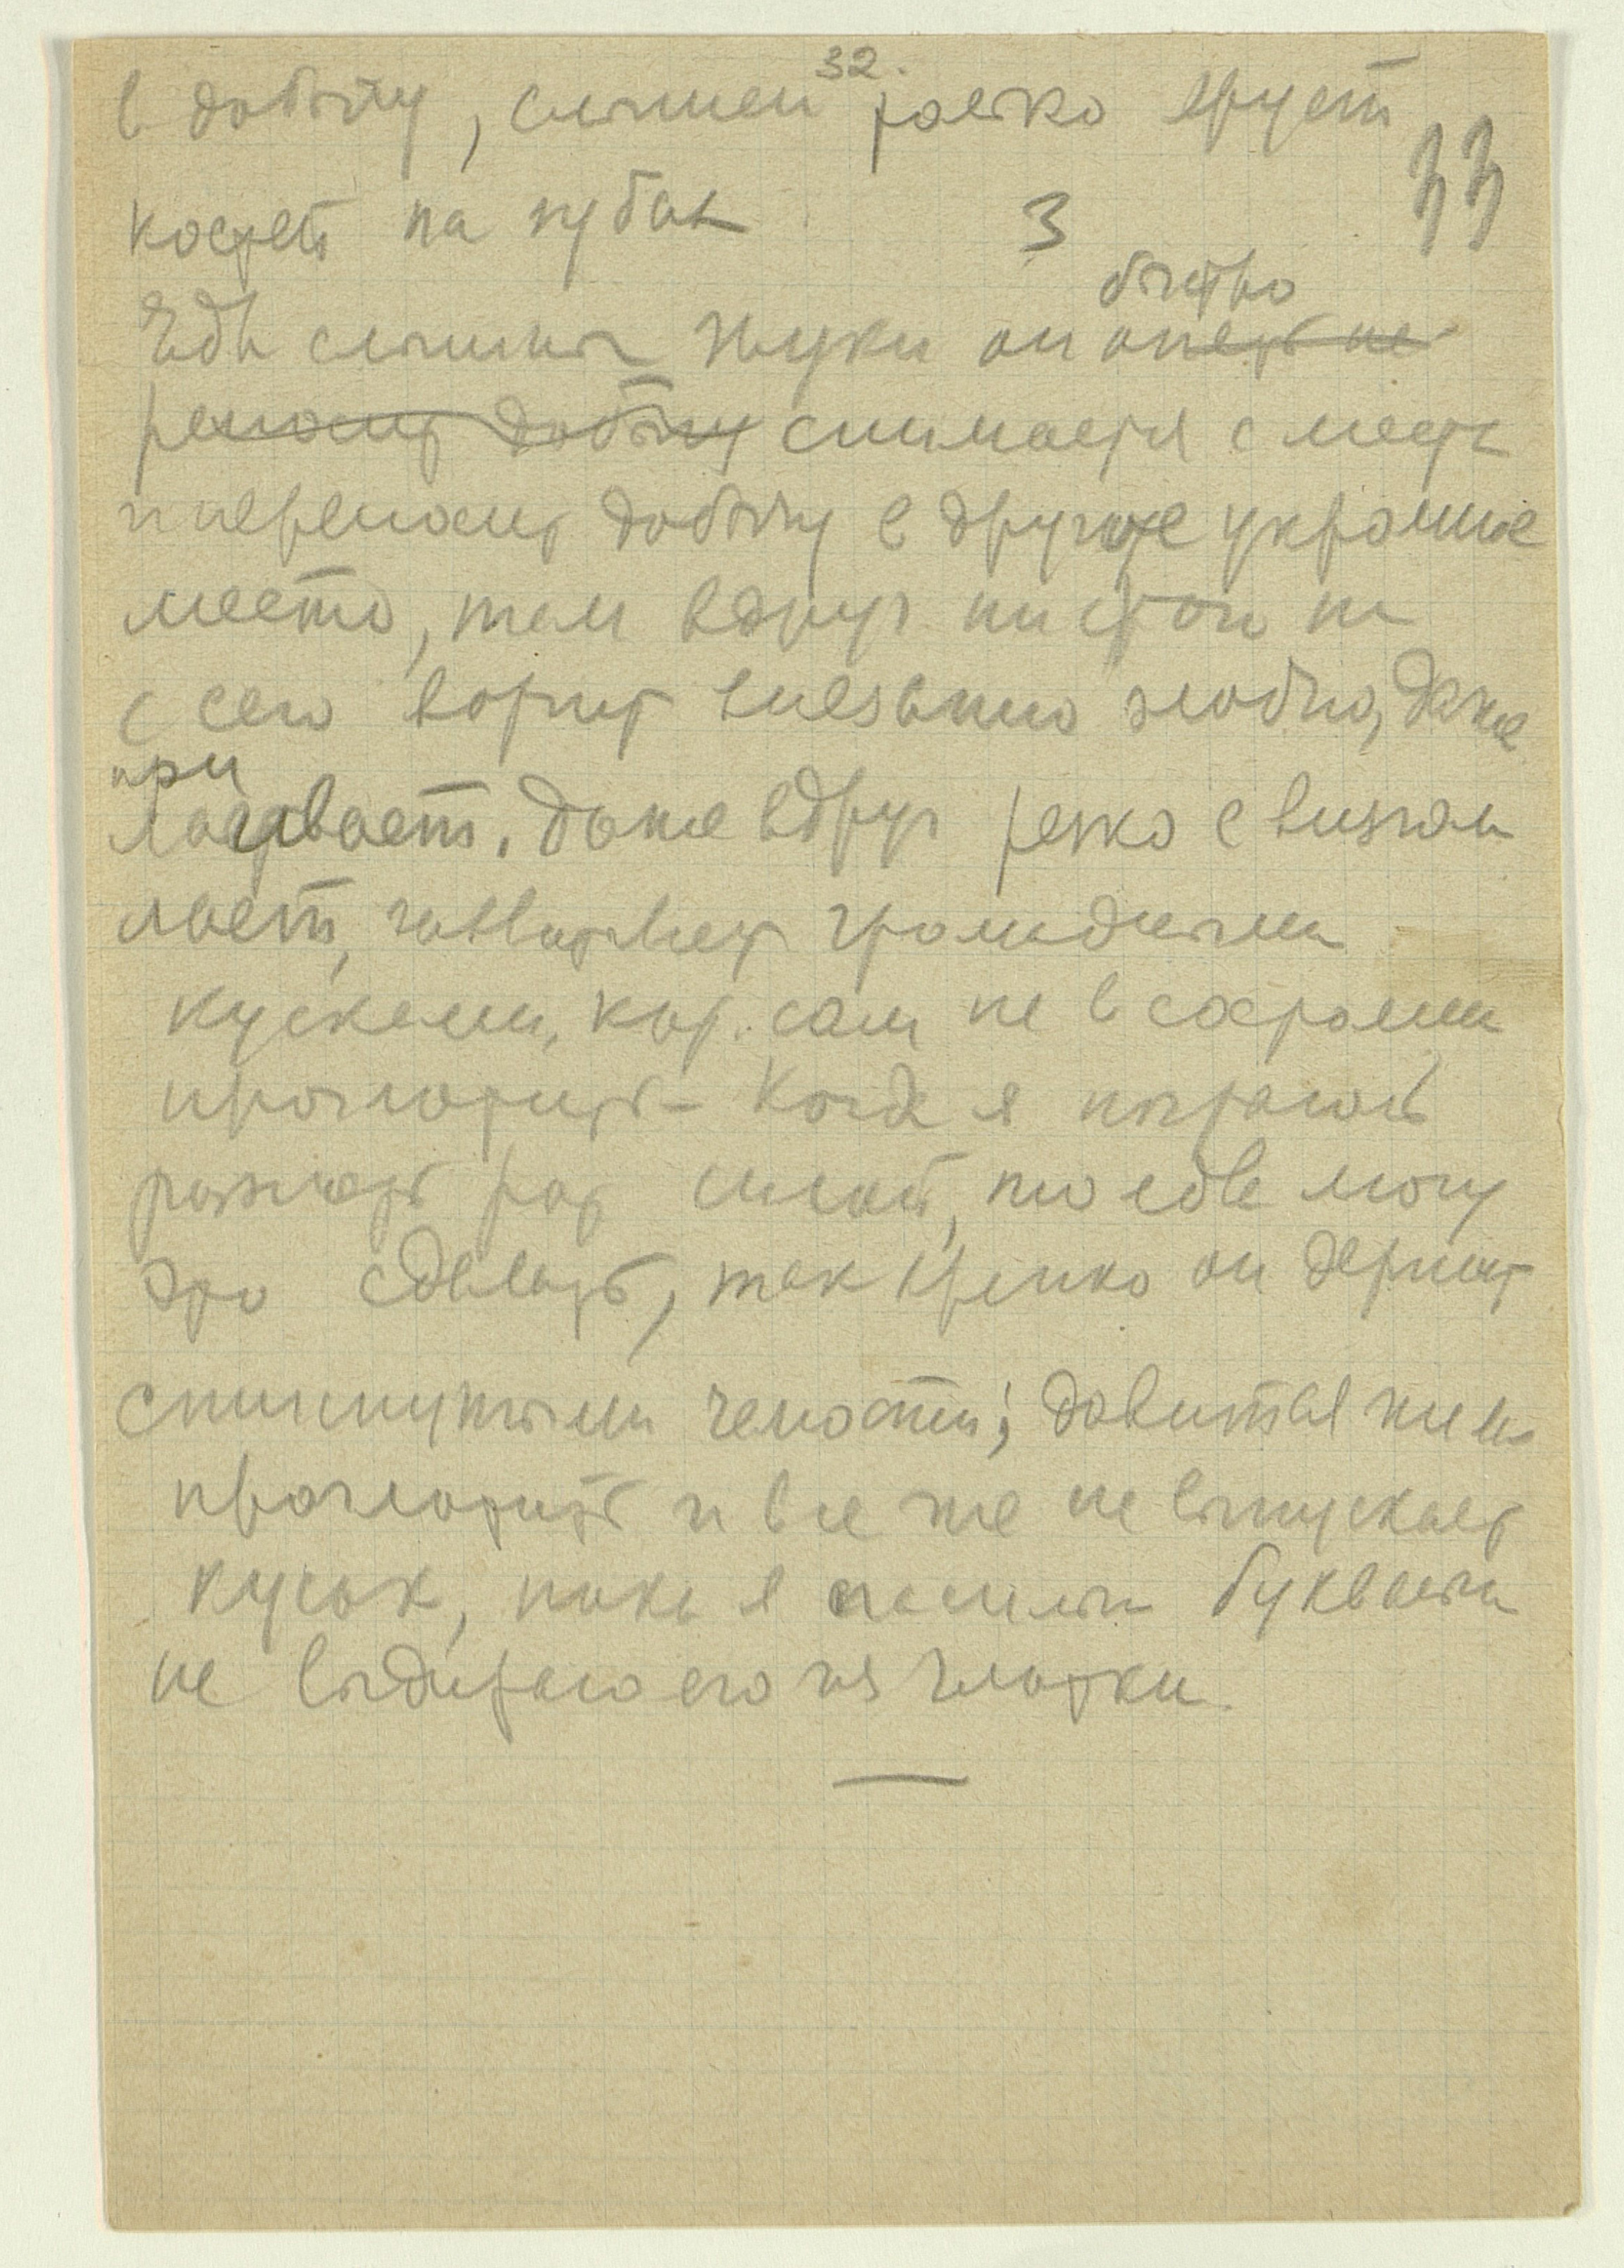 32.
в добычу, слышен только хруст
костей на зубах
3 33
быстро
Едва слышны звуки он опять пе
реносит добычу снимается с места
и переносит добычу в другое укромное
место, там вдруг ни с того ни
с сего ворчит внезапно злобно, даже
при
лаивает. Даже вдруг резко с визгом
лает, громадными
кусками, кот. сам не в состоянии
проглотить – Когда я пытаюсь
разжать рот силой, то едва могу
это сделать, так крепко он держит
стиснутыми челюсти; давится
проглотить и все же не выпускает
кусок, пока я насильно буквально
не выдираю его из глотки.